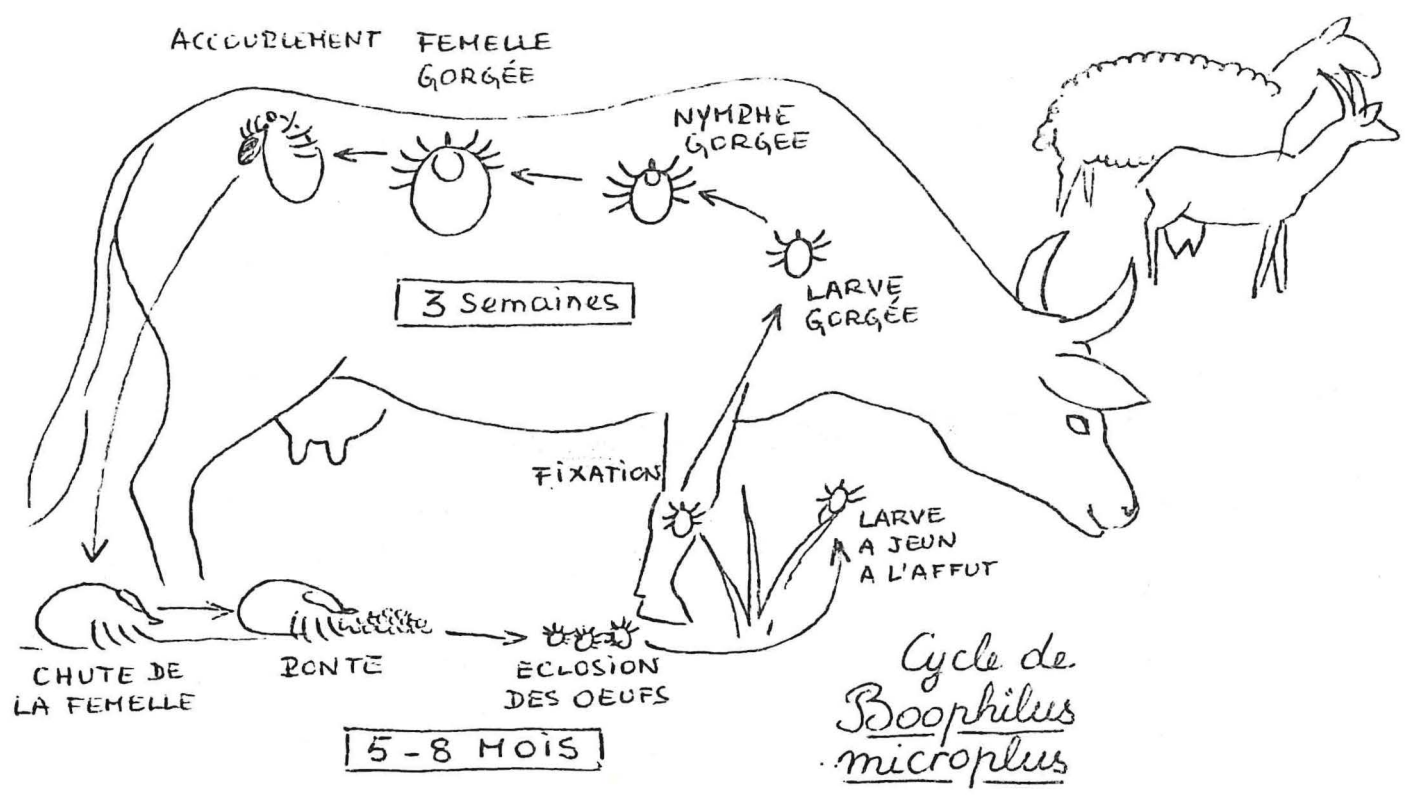 ACCOUPLEMENT
FEMELLE
GORGÉE
NYMPHE
GORGEE
3 Semaines
LARVE
GORGÉE
FIXATION
LARVE
A JEUN
A L'AFFUT
CHUTE DE
LA FEMELLE
PONTE
ECLOSION
DES OEUFS
5-8 MOIS
Cycle de
Boophilus
microplus